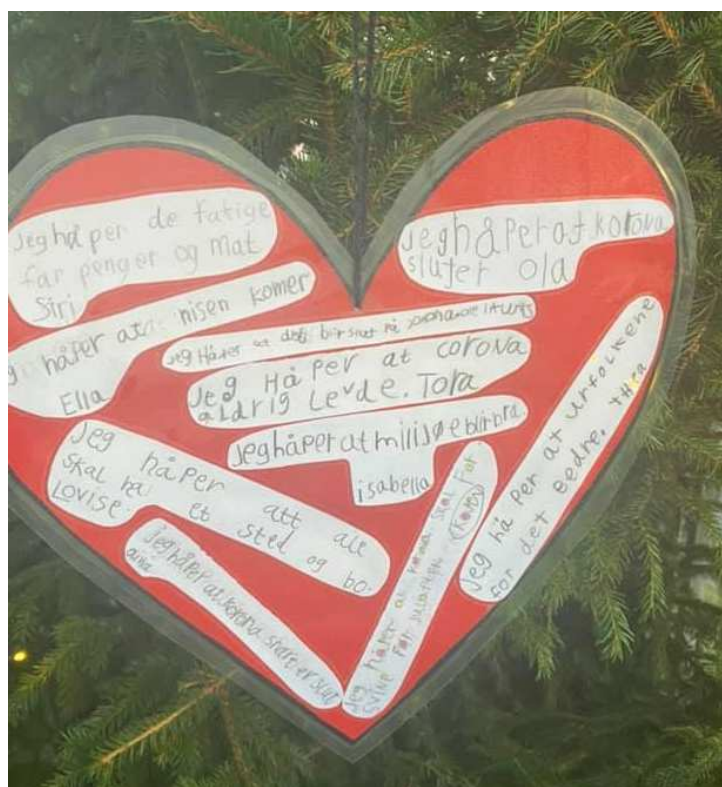 Jeg hå per de fatige
får penger og mat
Siri
håper at nisen komer
Ella
Jeg håPer at korona
sluter ola
Jeg Håper at det blir slut på
Jeg Hå Per at corona
aldrig Levde. Tora
Jeg håper at miljøe blir bra
isabella
Jeg håper att alle
skal ha et sted og bo.
Lovise.
Jeg håper at korona snart er slut
Jeg håper at korona skal for
svine før julaften.
Jeg hå per at urfolkene
for det bedre. thea